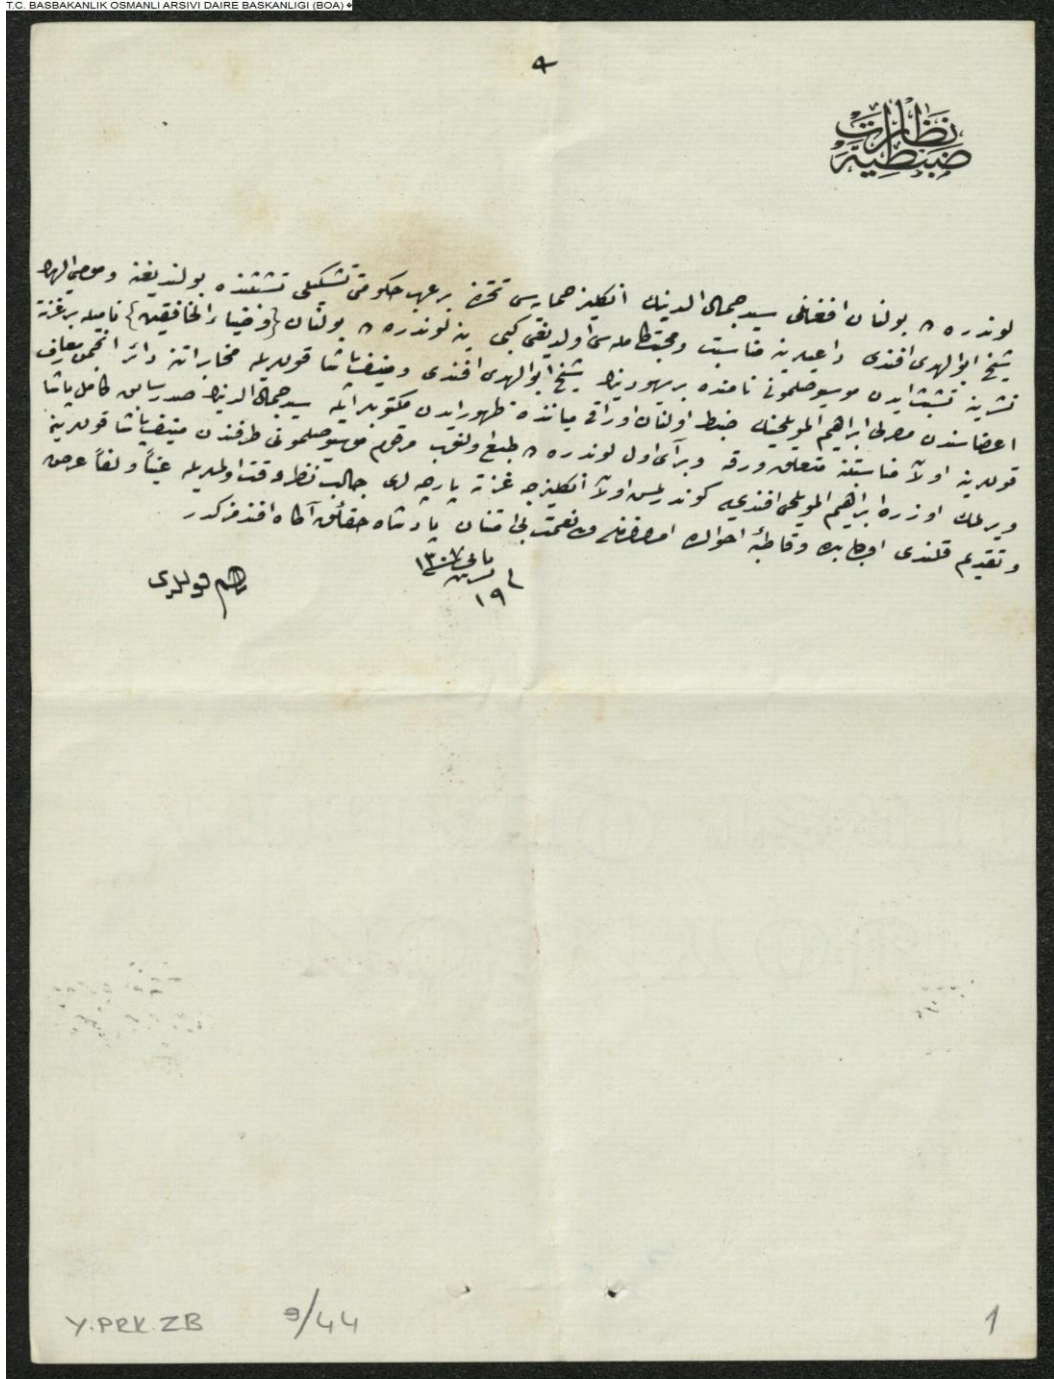 T.C. BASBAKANLIK OSMANLI ARSIVI DAIRE BASKANLIGI (BOA)
نظارت
ضبطيه
لوندره ده بولنان افغانى سيد جمال الدينك انكليز حمايه سى تحتنده بر عرب حكومتى تشكيلى تشبثنده بولنديغنه و مومى اليهك
شيخ ابوالهدى افندى داعيلرينه مناسبت و محبت كامله سى اولديغى كبى ينه لوندره ده بولنان {و ضياء الخافقين} ناميله بر غزته
نشرينه تشبث ايدن موسيو صلمونى نامنده بر يهودينك شيخ ابوالهدى افندى و منيف پاشا قوللريله مخابراتنه دائر انجمن معارف
اعضاسندن مصرلى ابراهيم المويلحينك ضبط اولنان اوراقى مياننده ظهور ايدن مكتوبلر ايله سيد جمال الدينك صدر سابق كامل پاشا
قوللرينه اولان مناسبتنه متعلق ورقه و بر آى اول لوندره ده طبع اولنوب مرقوم موسيو صلمونى طرفندن منيف پاشا قوللرينه
ويرلمك اوزره ابراهيم المويلحى افندى يه كوندريلمش اولان انكليزجه غزته پارچه لرى جالب نظر دقت اولمغله عيناً و لفاً عرض
و تقديم قلندى اولبابده و قاطبۀ احوالده امر و فرمان ولى نعمت بى امتنان پادشاه حقائق آگاه افندمزكدر
١٣٠٧
١٩
قوللرى
Y.PRK.ZB 9/44 1